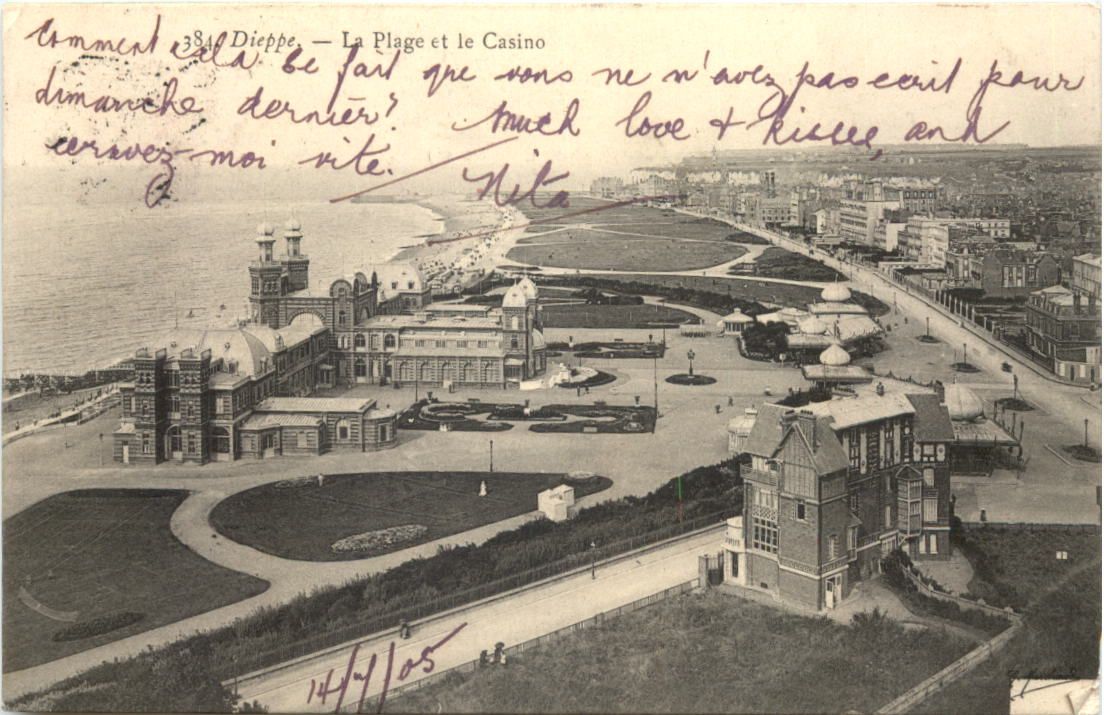 384 Dieppe. — La Plage et le Casino
Comment cela se fait que vous ne n'avez pas ecrit pour
dimanche dernier? Much love & kisses, and
ecrivez-moi vite.
Nita
14/7/05